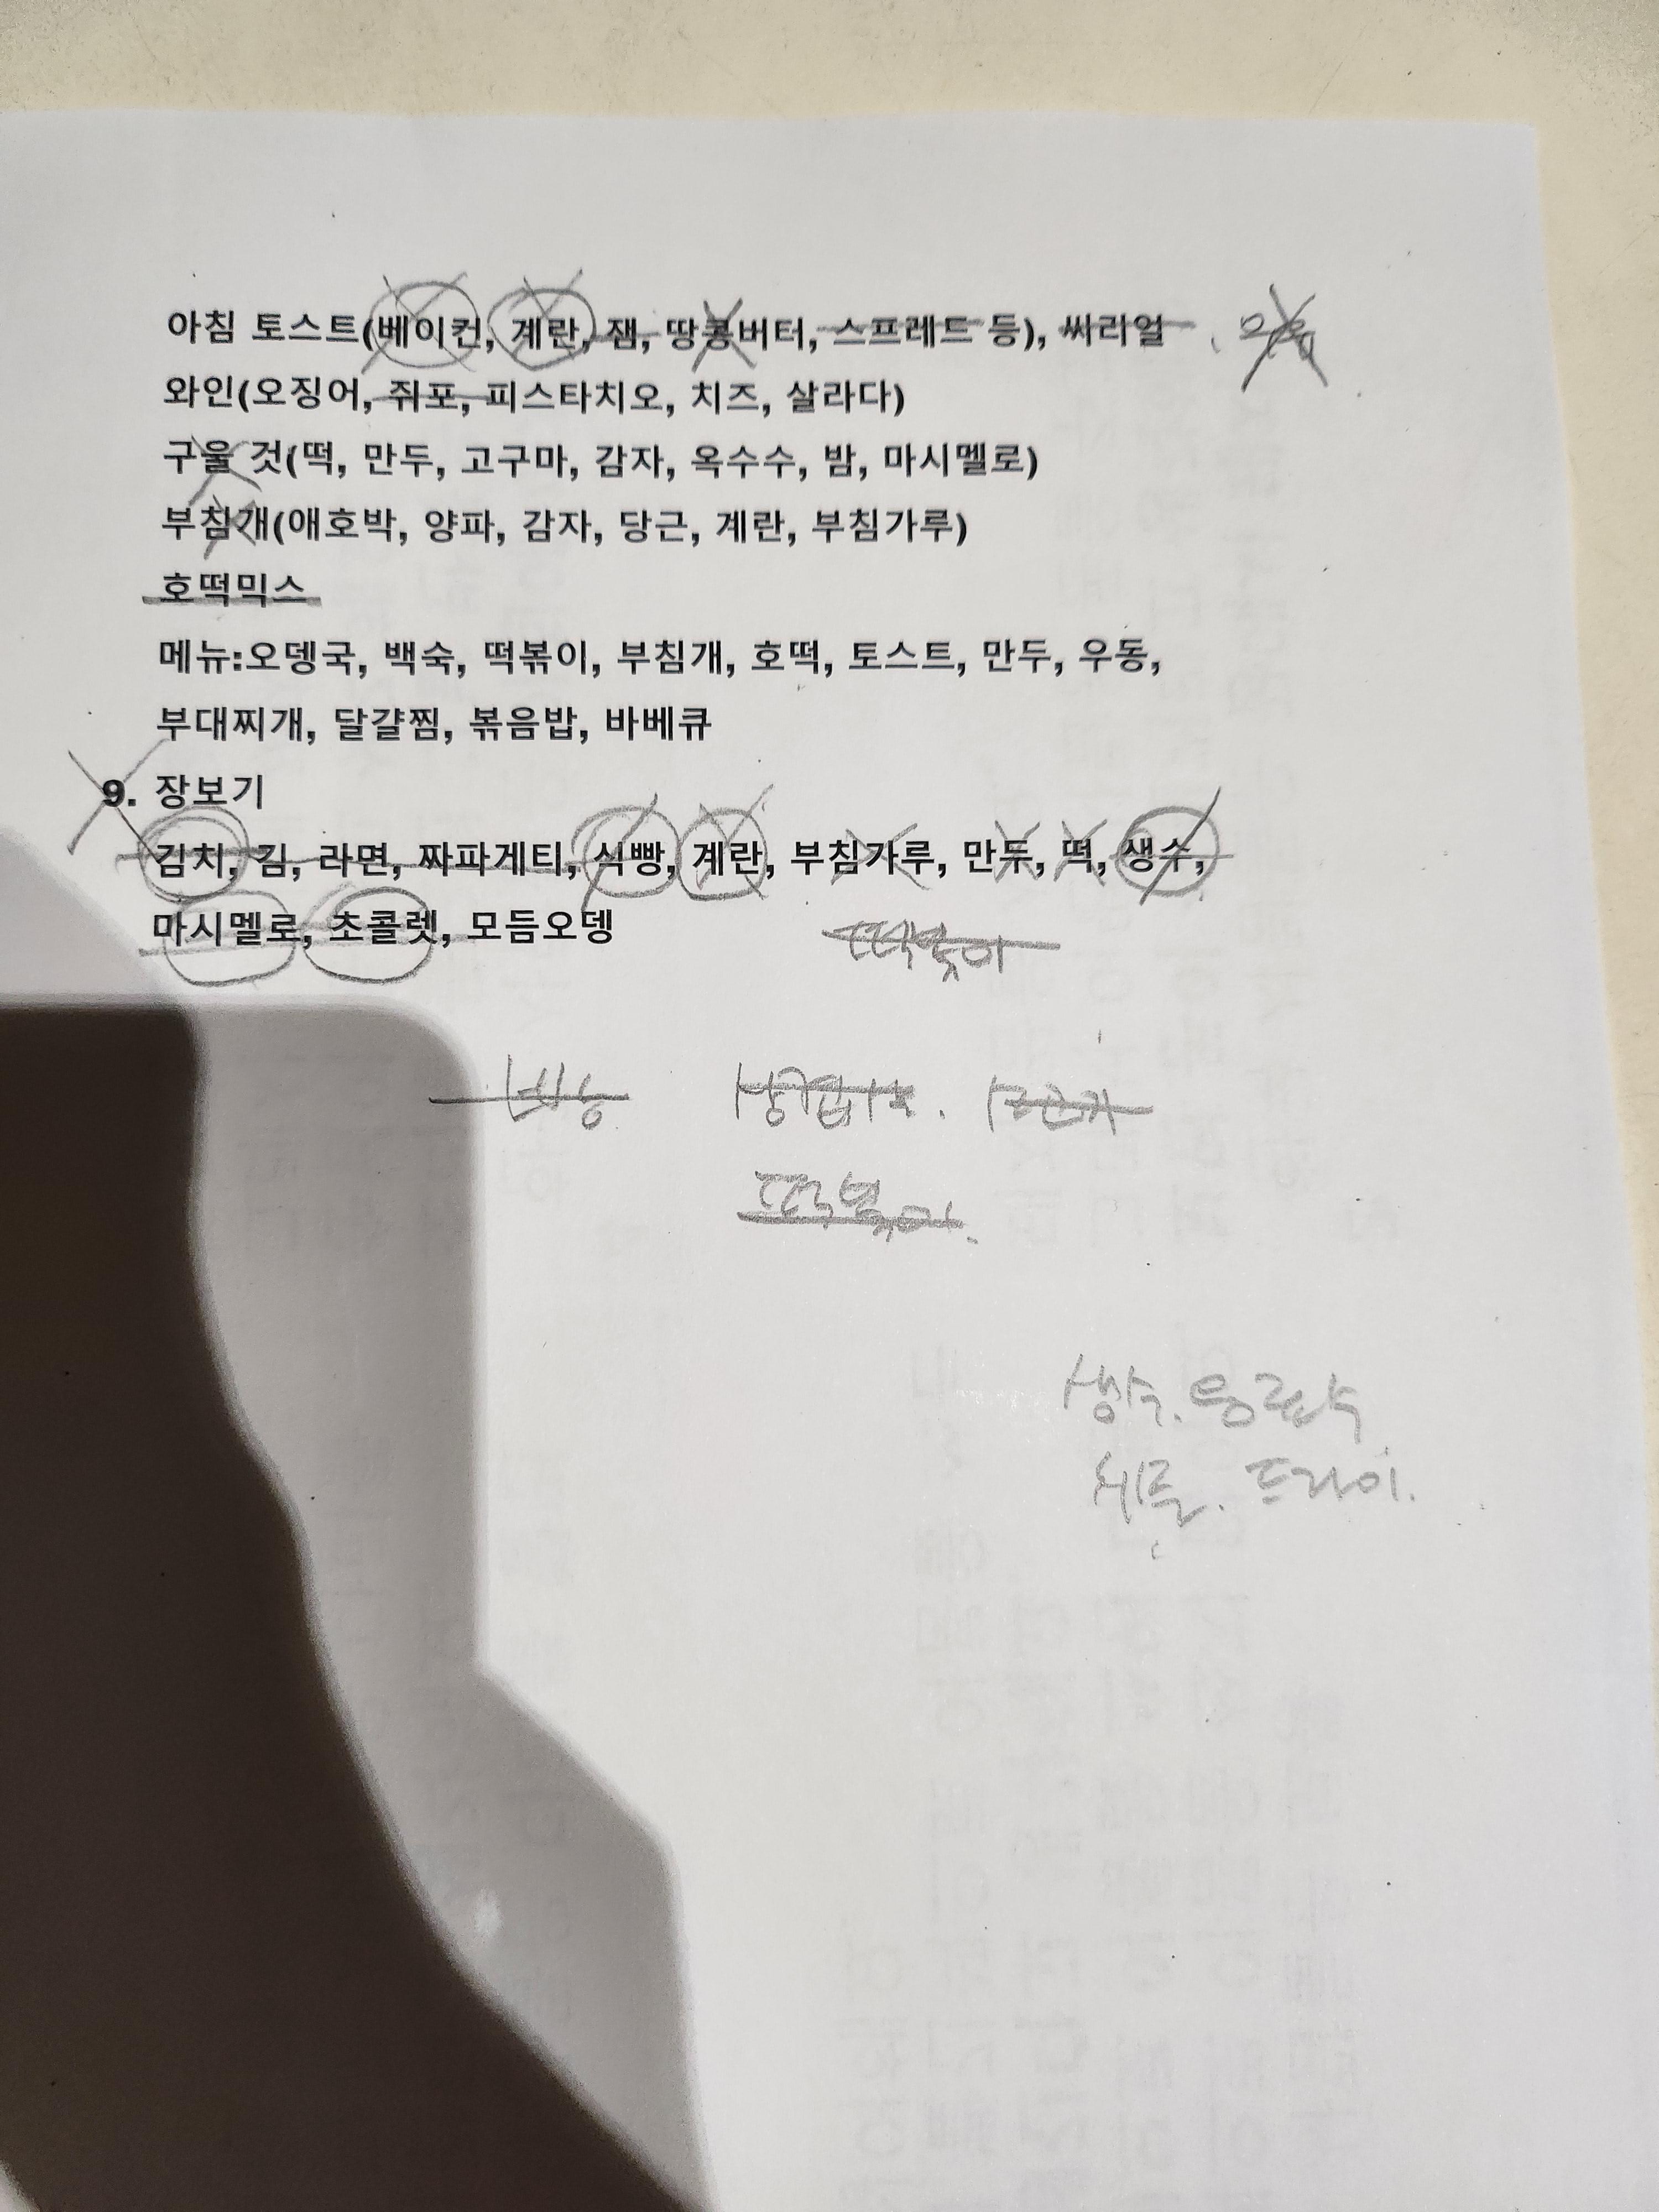 아침 토스트(베이컨, 계란, 잼, 땅콩버터, 스프레드 등), 씨리얼
와인(오징어, 쥐포, 피스타치오, 치즈, 살라다)
구울 것(떡, 만두, 고구마, 감자, 옥수수, 밤, 마시멜로)
부침개(애호박, 양파, 감자, 당근, 계란, 부침가루)
호떡믹스
메뉴:오뎅국, 백숙, 떡볶이, 부침개, 호떡, 토스트, 만두, 우동,
부대찌개, 달걀찜, 볶음밥, 바베큐
9. 장보기
김치, 김, 라면, 짜파게티, 식빵, 계란, 부침가루, 만두, 떡, 생수,
마시멜로, 초콜렛, 모듬오뎅
떡볶이
떡볶이.
생수. 음료수